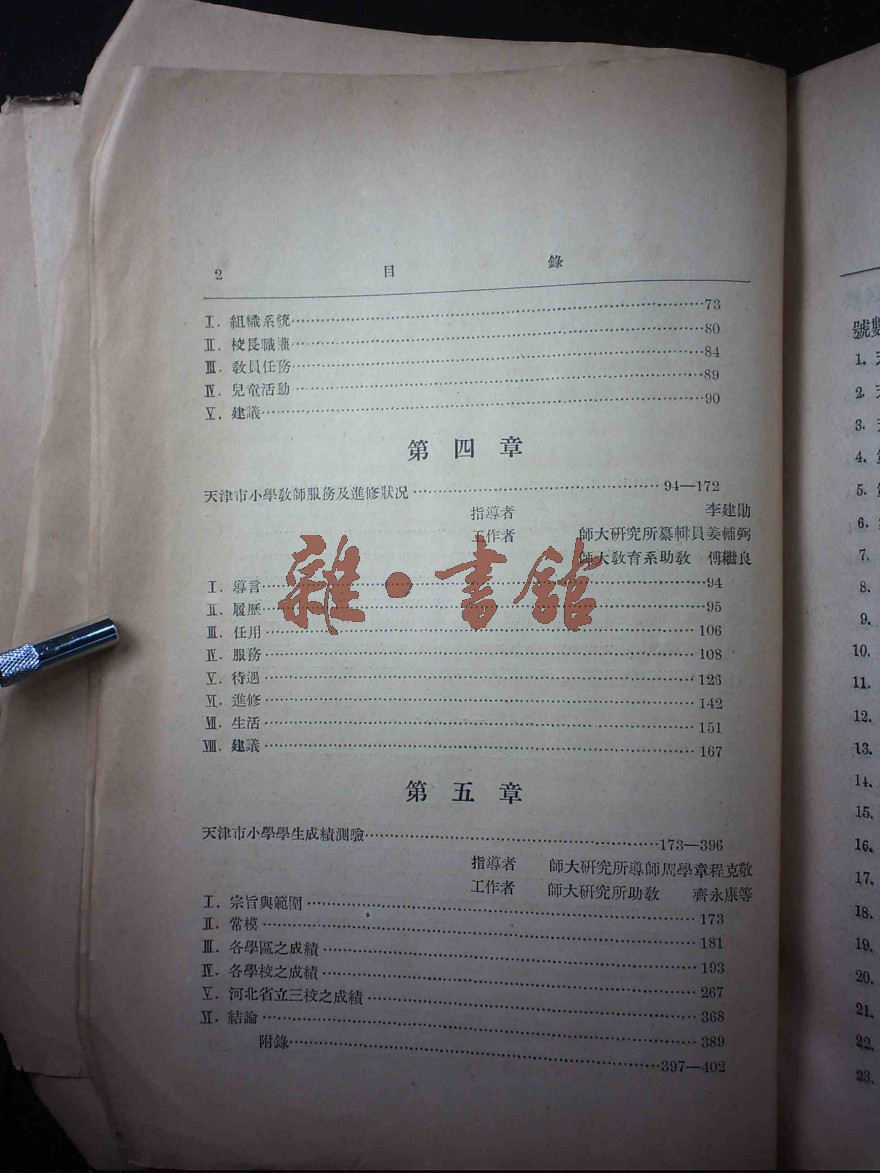 2 目 錄
I. 組織系統……73
II. 校長職權……80
III. 教員任務……84
IV. 兒童活動……89
V. 建議……90
第 四 章
天津市小學教師服務及進修狀况……94—172
指導者 李建勛
工作者 師大研究所纂輯員姜輔弼
師大教育系助教 傅繼良
I. 導言……94
II. 履歷……95
III. 任用……106
IV. 服務……108
V. 待遇……126
VI. 進修……142
VII. 生活……151
VIII. 建議……167
第 五 章
天津市小學學生成績測驗……173—396
指導者 師大研究所導師周學章程克敬
工作者 師大研究所助教 齊永康等
I. 宗旨與範圍……173
II. 常模……181
III. 各學區之成績……193
IV. 各學校之成績……267
V. 河北省立三校之成績……368
VI. 結論……389
附錄……397—402
雜·書館
號數
1.
2.
3.
4.
5.
6.
7.
8.
9.
10.
11.
12.
13.
14.
15.
16.
17.
18.
19.
20.
21.
22.
23.